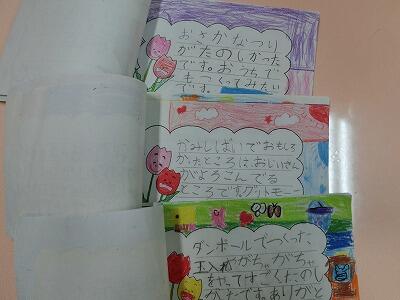 おさかなつり
がたのしかった
です。おうちで
もつくってみたい
です。
かみしばいでおもしろ
かったところは、おじいさん
がよろこんでる
ところです。グットモー
ダンボールでつくった、
玉入れやがちゃがちゃ
をやってすごくたのし
かったです。ありがと